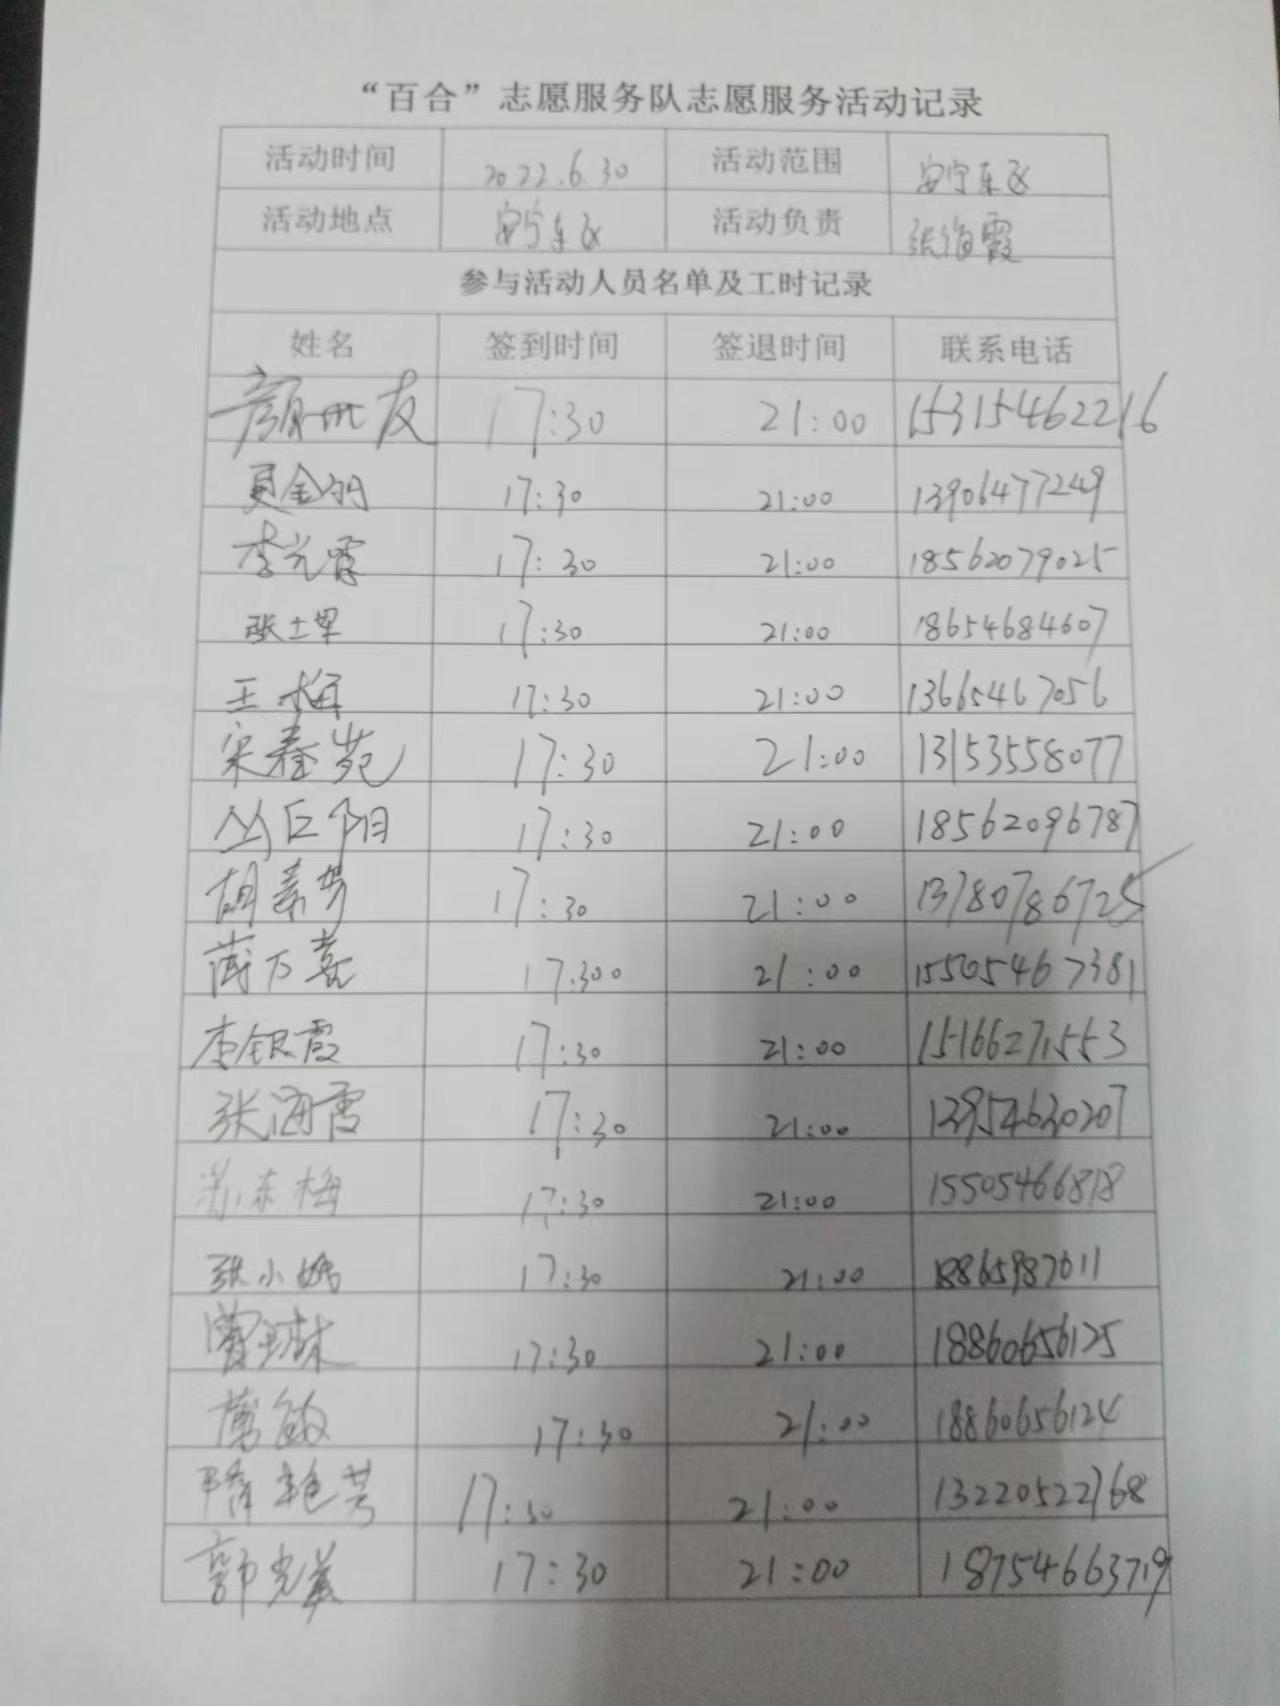 “百合”志愿服务队志愿服务活动记录
活动时间 2022.6.30 活动范围 安宁东区
活动地点 安宁东区 活动负责 张海霞
参与活动人员名单及工时记录
姓名 签到时间 签退时间 联系电话
颜世友 17:30 21:00 15315462216
17:30 21:00 13906477249
李光霞 17:30 21:00 18562079025
张士军 17:30 21:00 18654684607
王梅 17:30 21:00 13665467056
宋春苑 17:30 21:00 13153558077
丛巨阳 17:30 21:00 18562096787
胡素芳 17:30 21:00 13780786725
蒋万喜 17:300 21:00 15505467381
李银霞 17:30 21:00 15166271553
张海霞 17:30 21:00 13954630207
苏东梅 17:30 21:00 15505466818
张小娥 17:30 21:00 18865987011
曹琳 17:30 21:00 18860656125
17:30 21:00 18860656124
隋艳芳 17:30 21:00 13220522768
郭光美 17:30 21:00 18754663719